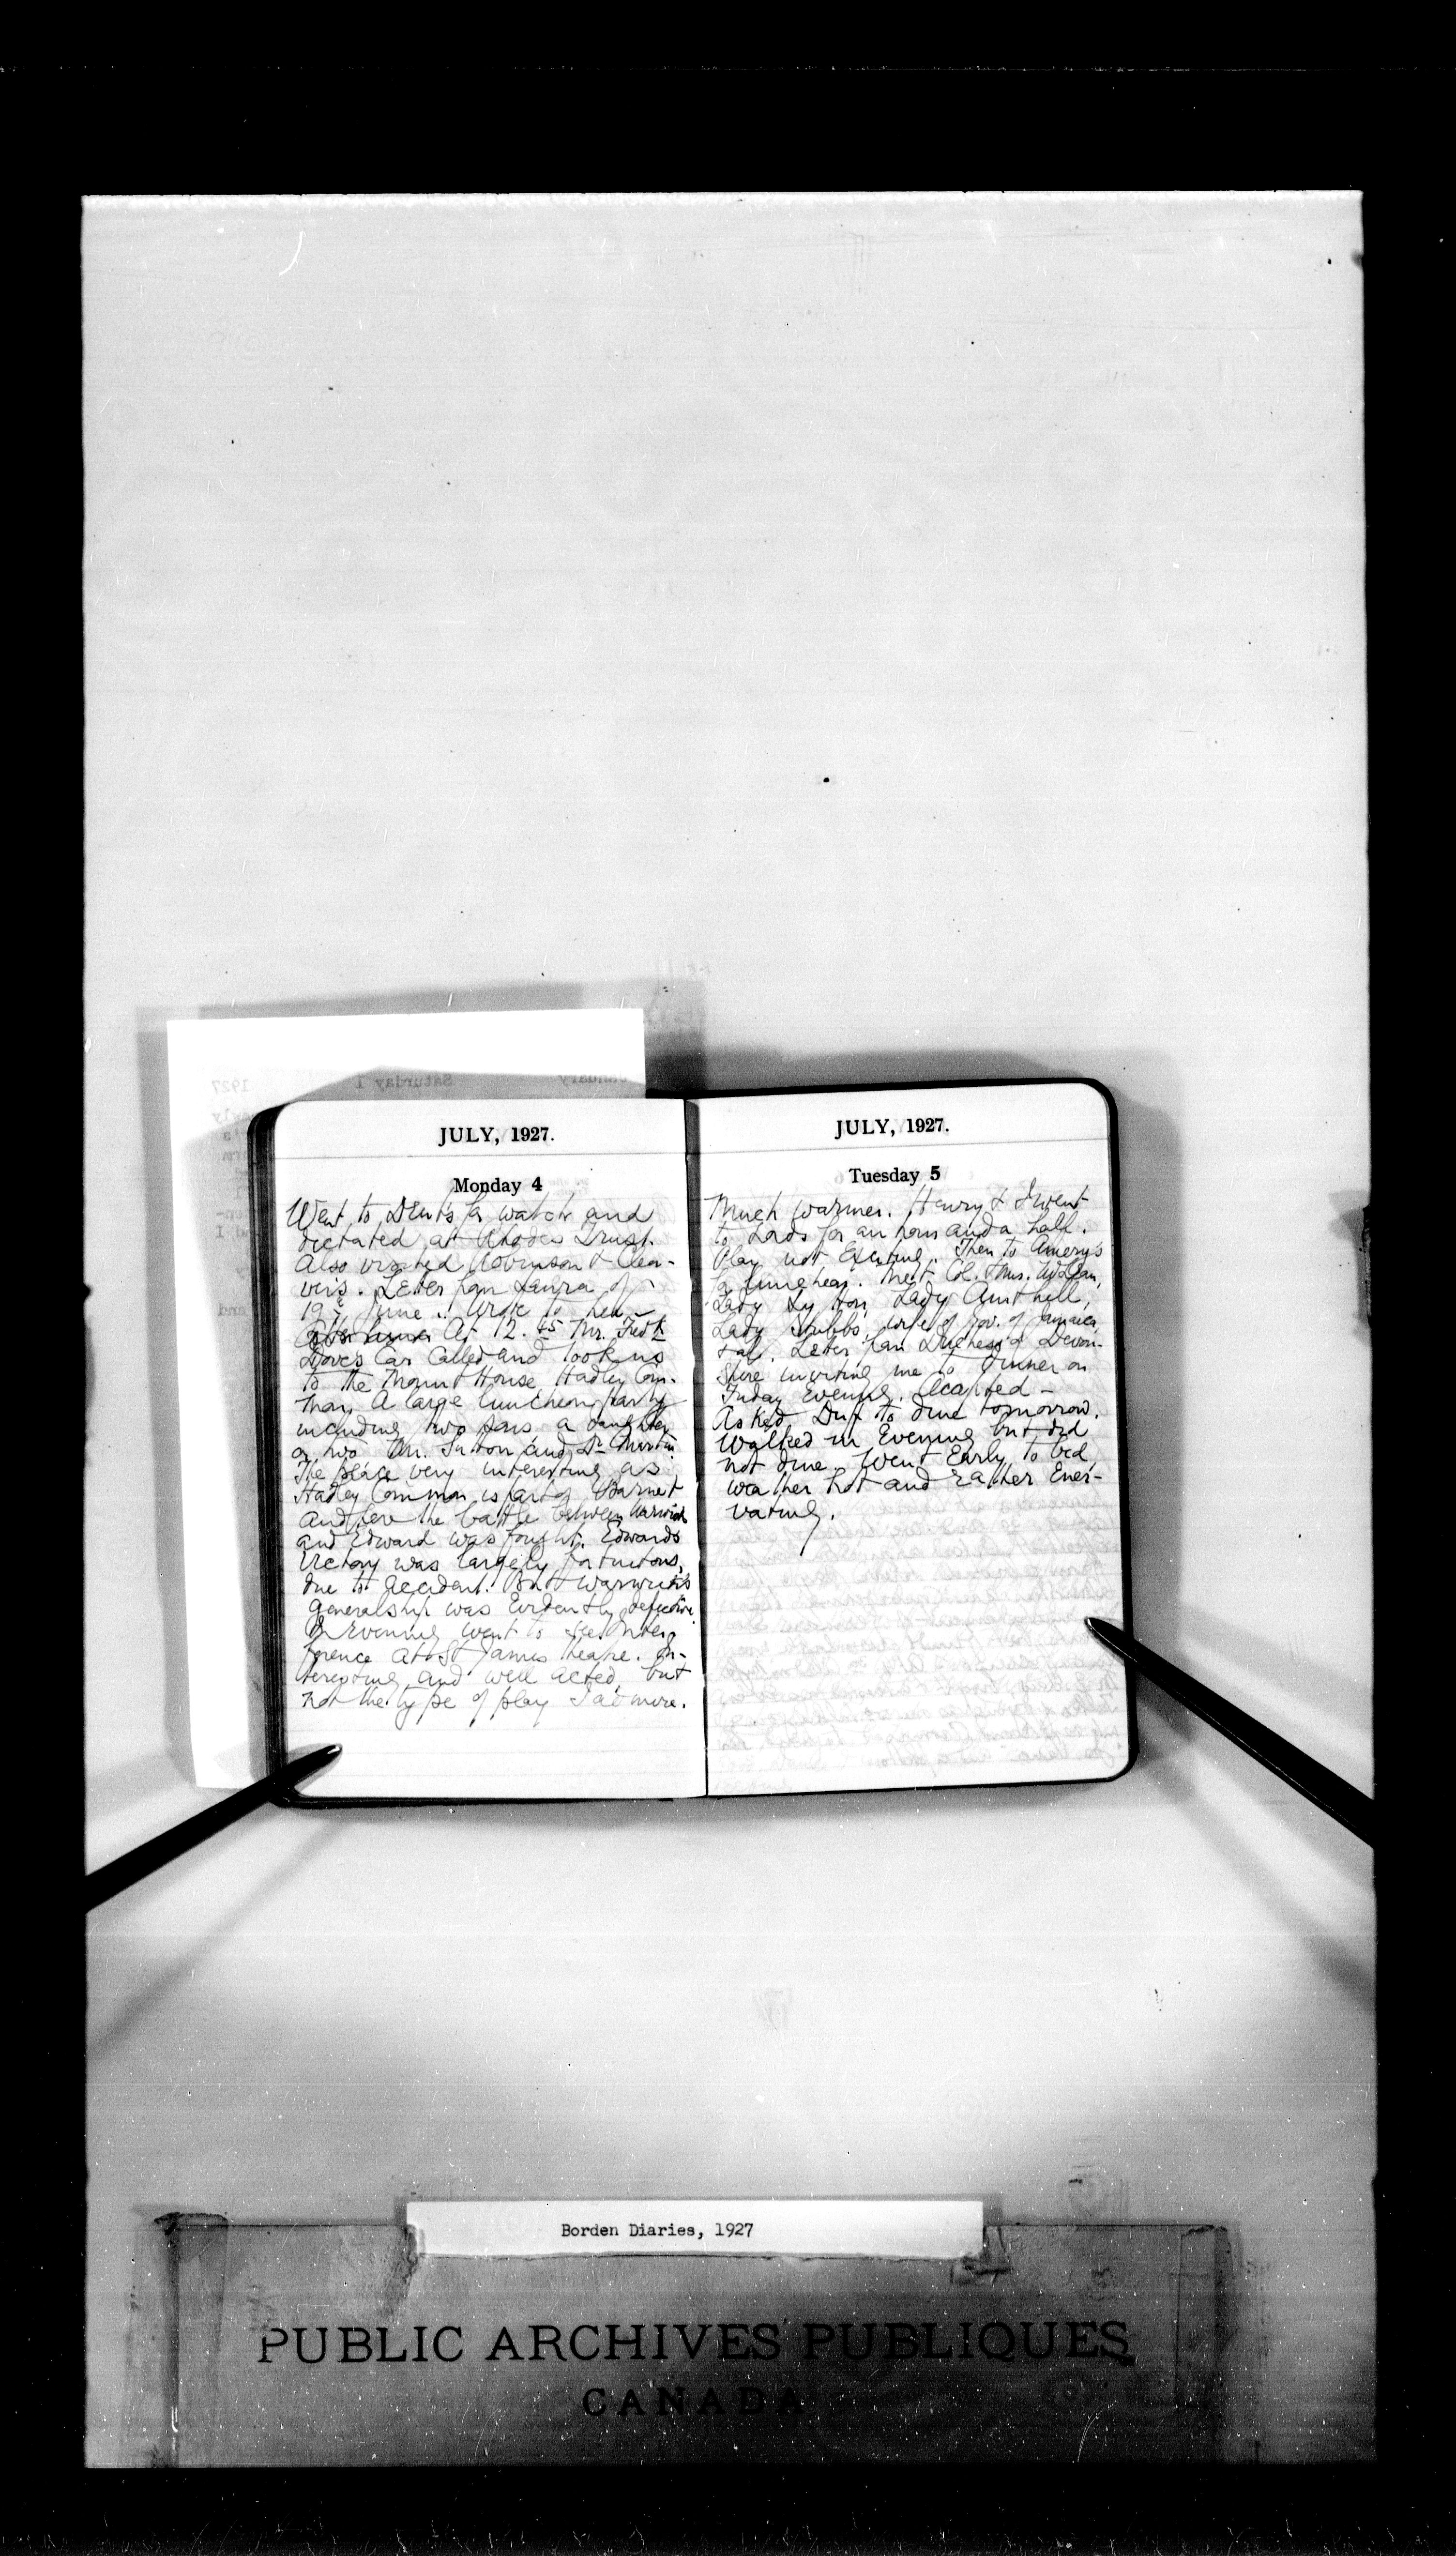 JULY, 1927.
Monday 4
Went to Dent's for watch and
dictated at Rhodes Trust.
Also visited Robinson & Clea-
ver's. Letter from Laura of
19th June. Wrote to her.
At 12.45 Mr. Fredk
Dove's Car Called and took us
to the Mount House, Hadley Com-
mon. A large luncheon party
including two sons a daughter
or two Mr. Sutton and Dr. Martin
The place very interesting as
Hadley Common is part of Barnet
and here the battle between Warwick
and Edward was fought. Edwards
Victory was largely fortuitous,
due to accident. But Warwick's
generalship was Evidently defective
In Evening went to see Inter-
ference at St James theatre. In-
teresting and well acted, but
not the type of play I admire.
JULY, 1927.
Tuesday 5
Much warmer. Henry & I went
to Lords for an hour and a half.
Play not Exciting. Then to Amery's
for luncheon. Meet Col. & Mrs.
Lady Lytton, Lady Ampthill,
Lady Stubbs, wife of Gov. of Jamaica,
Letter from Duchess of Devon-
shire inviting me to dinner on
Friday Evening. Accepted -
Asked Duff to dine tomorrow.
Walked in Evening but did
not dine. Went Early to bed,
weather hot and rather Ener-
vating.
Borden Diaries, 1927
PUBLIC ARCHIVES PUBLIQUES
CANADA